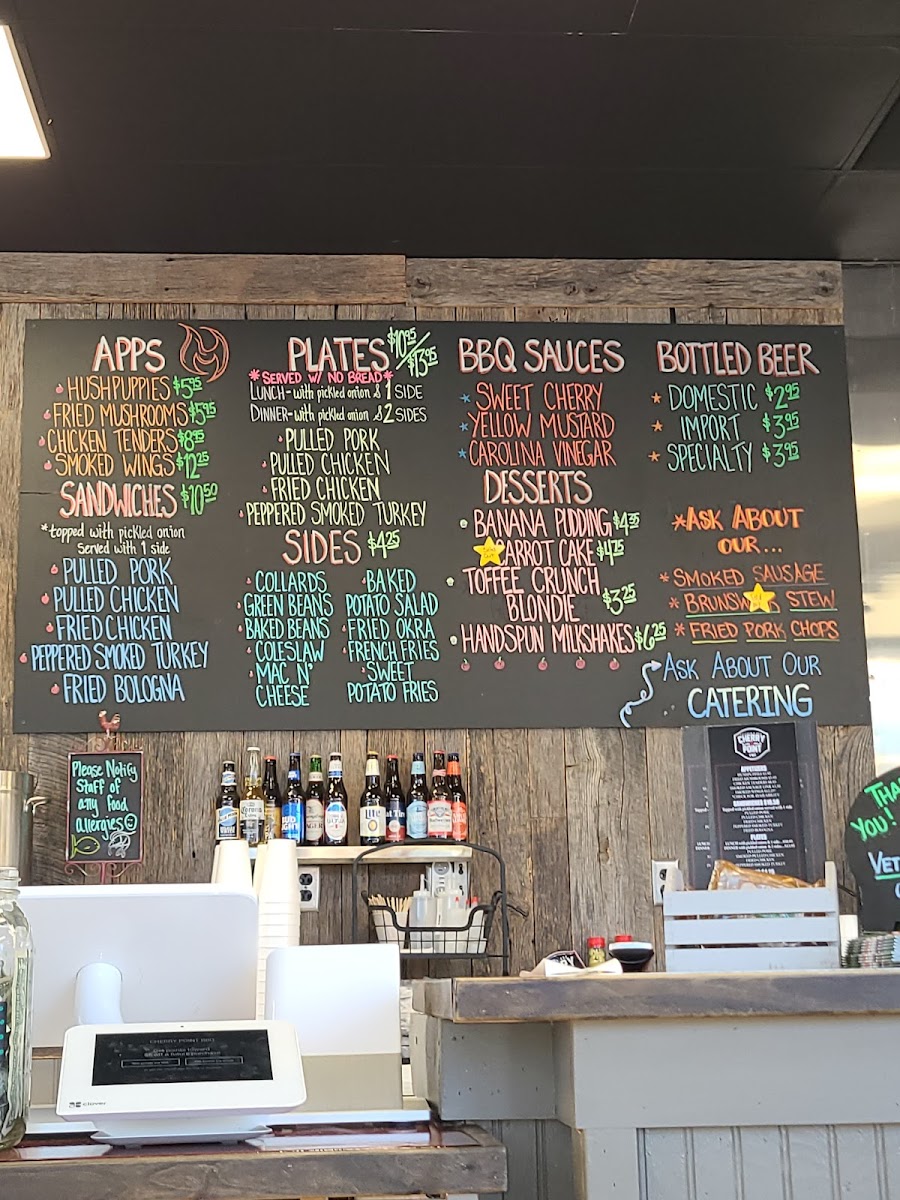 APPS
HUSHPUPPIES $5.95
FRIED MUSHROOMS $5.95
CHICKEN TENDERS $8.95
SMOKED WINGS $12.25
SANDWICHES $10.50
*topped with pickled onion
served with 1 side
PULLED PORK
PULLED CHICKEN
FRIED CHICKEN
PEPPERED SMOKED TURKEY
FRIED BOLOGNA
PLATES $10.95/$13.95
*SERVED W/ NO BREAD*
LUNCH-with pickled onion & 1 SIDE
DINNER-with pickled onion & 2 SIDES
PULLED PORK
PULLED CHICKEN
FRIED CHICKEN
PEPPERED SMOKED TURKEY
SIDES $4.25
COLLARDS
GREEN BEANS
BAKED BEANS
COLESLAW
MAC N'
CHEESE
BAKED
POTATO SALAD
FRIED OKRA
FRENCH FRIES
SWEET
POTATO FRIES
BBQ SAUCES
SWEET CHERRY
YELLOW MUSTARD
CAROLINA VINEGAR
DESSERTS
BANANA PUDDING $4.35
CARROT CAKE $4.75
TOFFEE CRUNCH
BLONDIE $3.25
HANDSPUN MILKSHAKES $6.25
BOTTLED BEER
DOMESTIC $2.95
IMPORT $3.95
SPECIALTY $3.95
*ASK ABOUT
OUR...
* SMOKED SAUSAGE
* BRUNSWICK STEW
* FRIED PORK CHOPS
ASK ABOUT OUR
CATERING
Please Notify
Staff of
any food
allergies
BUD
LIGHT
Lite
CHERRY
POINT
APPETIZERS
SANDWICHES $10.50
PLATES
THA
YOU!
VET
CHERRY POINT BBQ
clover